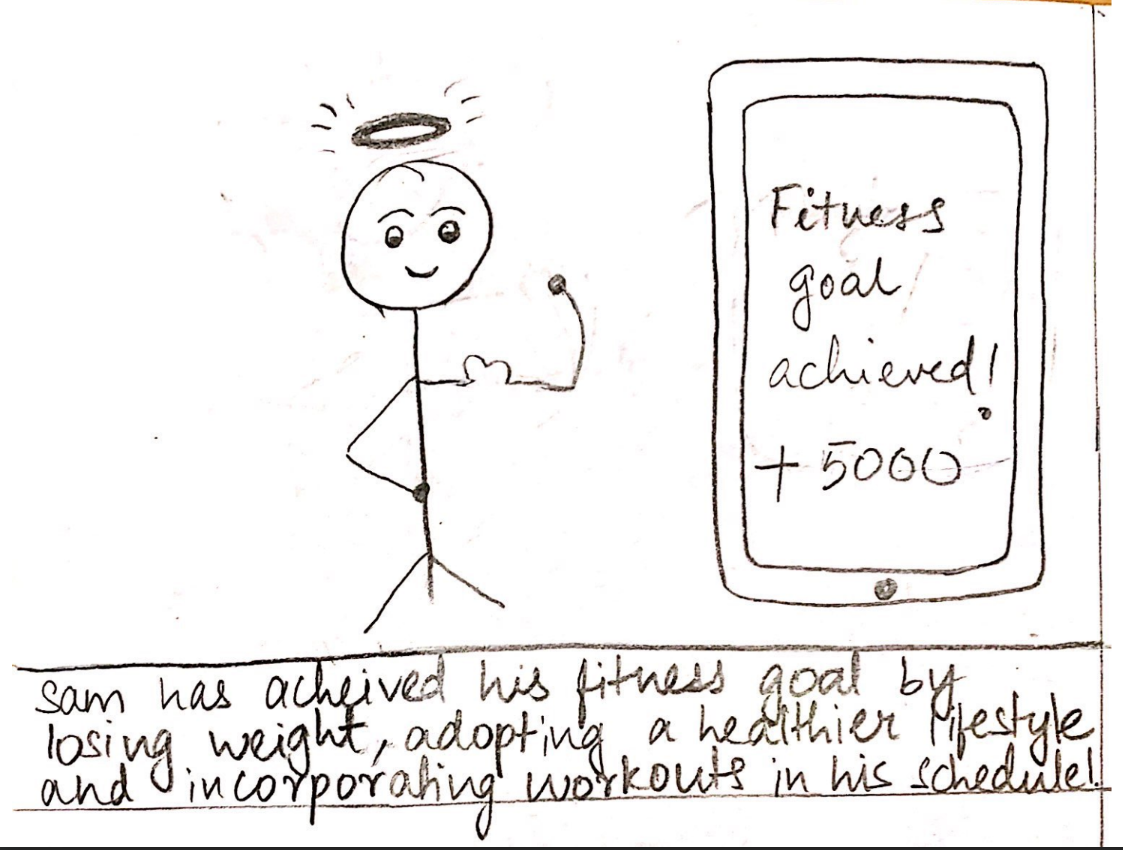 Fitness
goal
achieved!
+ 5000
sam has acheived his fitness goal by
losing weight, adopting a healthier lifestyle
and incorporating workouts in his schedule!